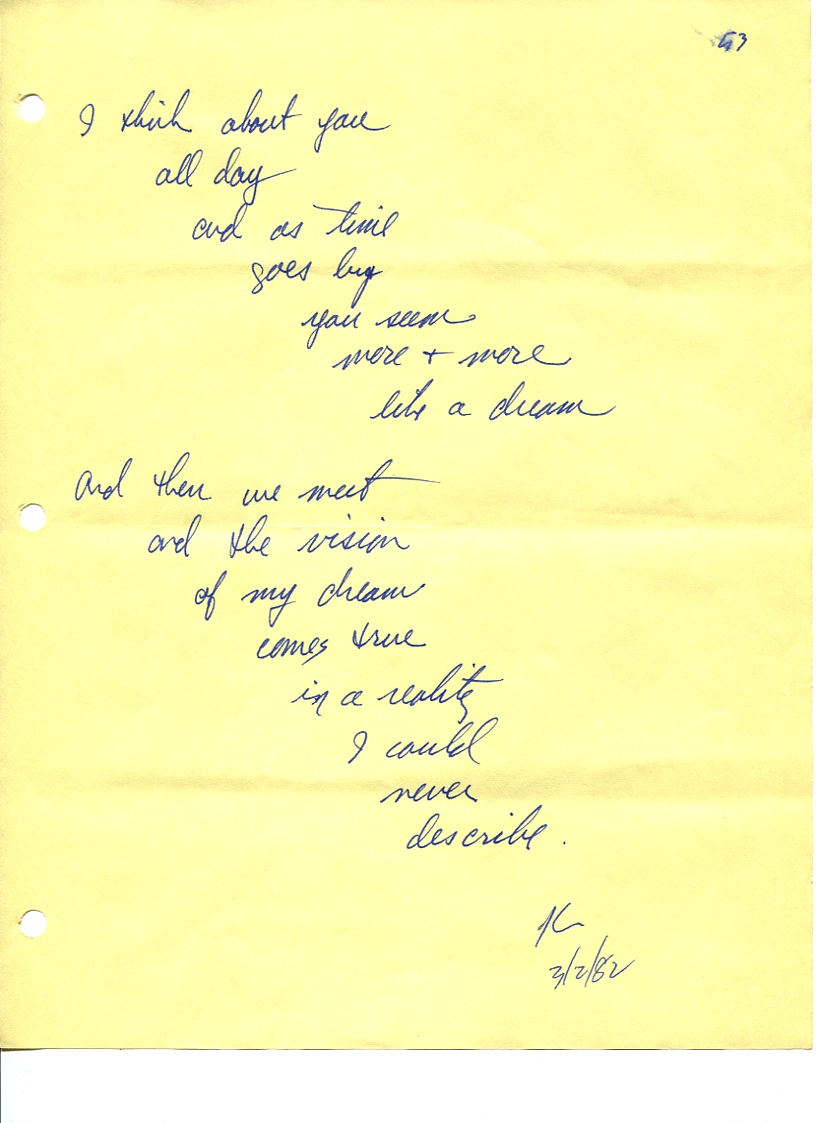 53
I think about you
all day
and as time
goes by
you seem
more + more
like a dream
And then we meet
and the vision
of my dream
comes true
in a reality
I could
never
describe.
K
3/2/82